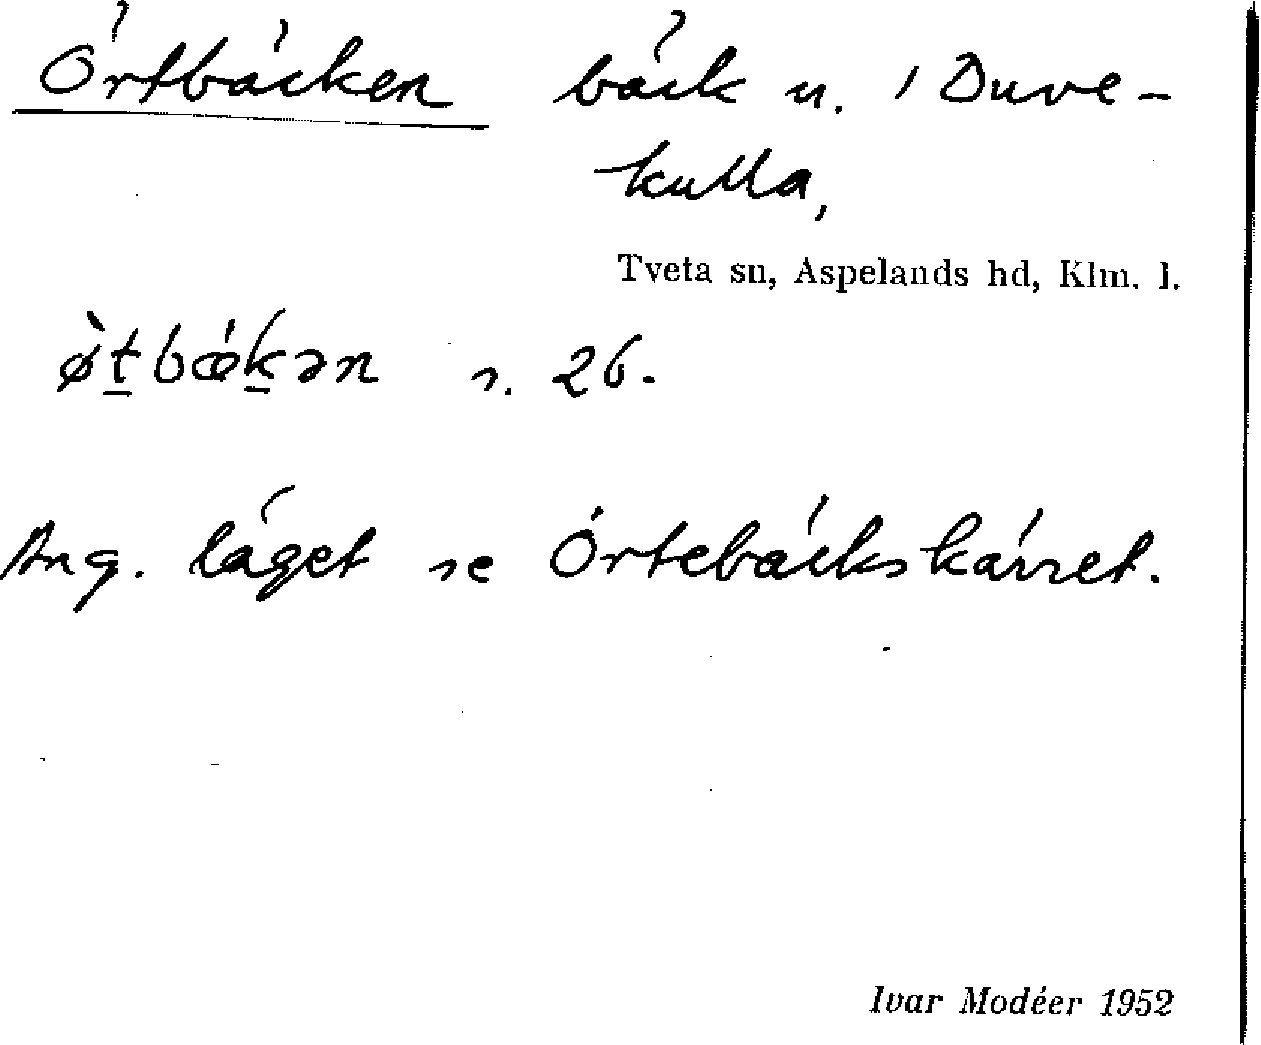 Örtbäcken bäck n. i Duve-
kulla,
Tveta sn, Aspelands hd, Klm. l.
ø̀t̲bǽk̲ən s. 26.
Ang. läget se Örtebäckskärret.
Ivar Modéer 1952